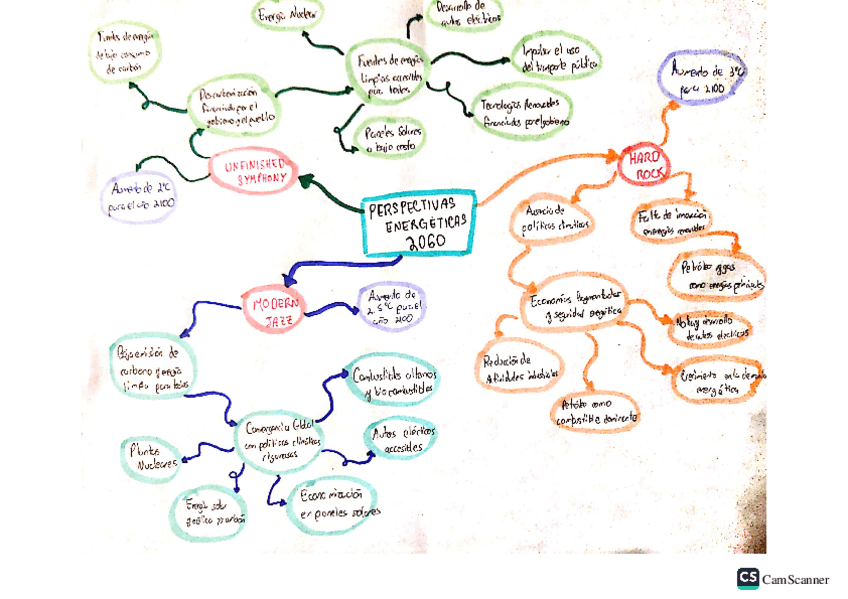 Energía Nuclear
Desarrollo de
autos eléctricos
Fuentes de energía
de bajo consumo
de carbón
Fuentes de energía
limpias accesibles
para todos
Impulsar el uso
del transporte público
Aumento de 3°C
para 2100
Descarbonización
financiada por el
gobierno y el pueblo
Tecnologías Renovables
financiadas por el gobierno
Paneles Solares
a bajo costo
UNFINISHED
SYMPHONY
HARD
ROCK
Aumento de 2°C
para el año 2100
PERSPECTIVAS
ENERGÉTICAS
2060
Ausencia de
políticas climáticas
Falta de innovación
en energías renovables
Petróleo y gas
como energías principales
MODERN
JAZZ
Aumento de
2.5°C para el
año 2100
Economías fragmentadas
y seguridad energética
No hay desarrollo
de autos eléctricos
Baja emisión de
carbono y energía
limpia para todos
Reducción de
Actividades industriales
Crecimiento en la demanda
energética
Combustibles
y bio combustibles
Petróleo como
combustible dominante
Convergencia Global
con políticas climáticas
rigurosas
Autos eléctricos
accesibles
Plantas
Nucleares
Energía solar
Economización
en paneles solares
CS CamScanner